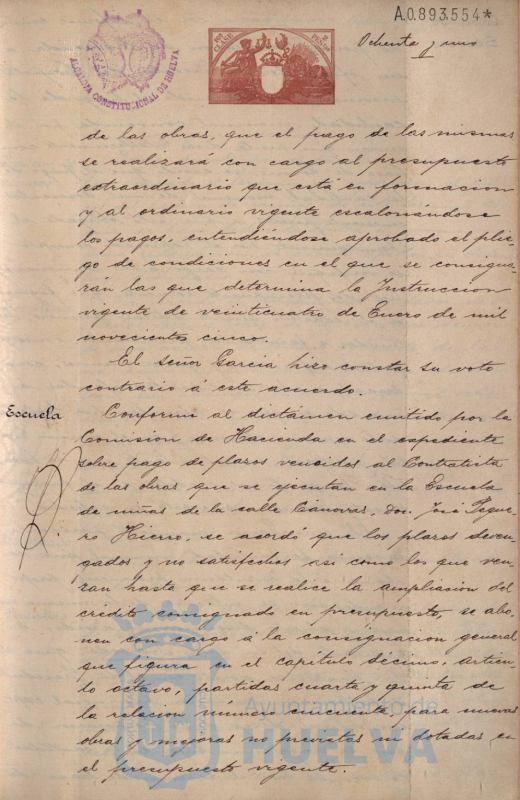 A.0.893.554*
Ochenta y uno
ALCALDIA CONSTITUCIONAL DE HUELVA
de las obras, que el pago de las mismas
se realizará con cargo al presupuesto
extraordinario que está en formacion
y al ordinario vigente escalonándose
los pagos, entendiéndose aprobado el plie
go de condiciones en el que se consigna
rán las que determina la Instruccion
vigente de veinticuatro de Enero de mil
novecientos cinco.
El señor Garcia hizo constar su voto
contrario á este acuerdo.
Escuela
Conforme al dictámen emitido por la
Comision de Hacienda en el expediente
sobre pago de plazos vencidos al Contratista
de las obras que se ejecutan en la Escuela
de niñas de la calle Cánovas, Don José Segue
ro Hierro, se acordó que los plazos deven
gados y no satisfechos asi como los que ven
zan hasta que se realice la ampliacion del
crédito consignado en presupuesto, se abo
nen con cargo á la consignacion general
que figura en el capítulo décimo, artícu
lo octavo, partidas cuarta y quinta de
la relacion número cincuenta, para nuevas
obras y mejoras no previstas ni dotadas en
el presupuesto vigente.
Ayuntamiento de
HUELVA